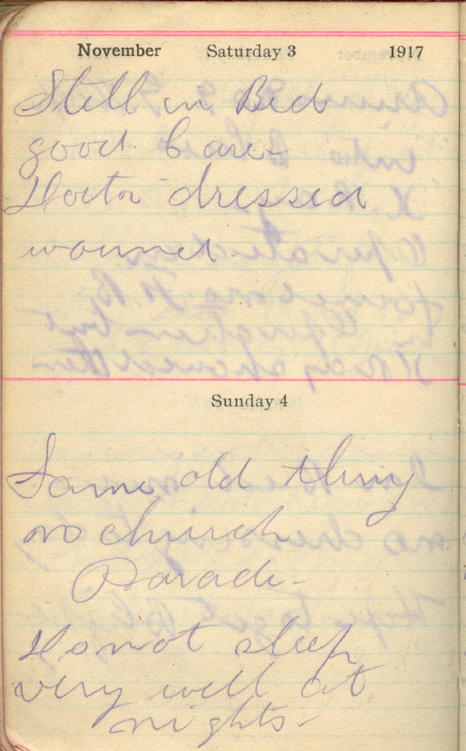 November Saturday 3 1917
Still in Bed
good Care
Doctor dressed
wound.
Sunday 4
Same old thing
no church
Parade -
Do not sleep
very well at
nights -